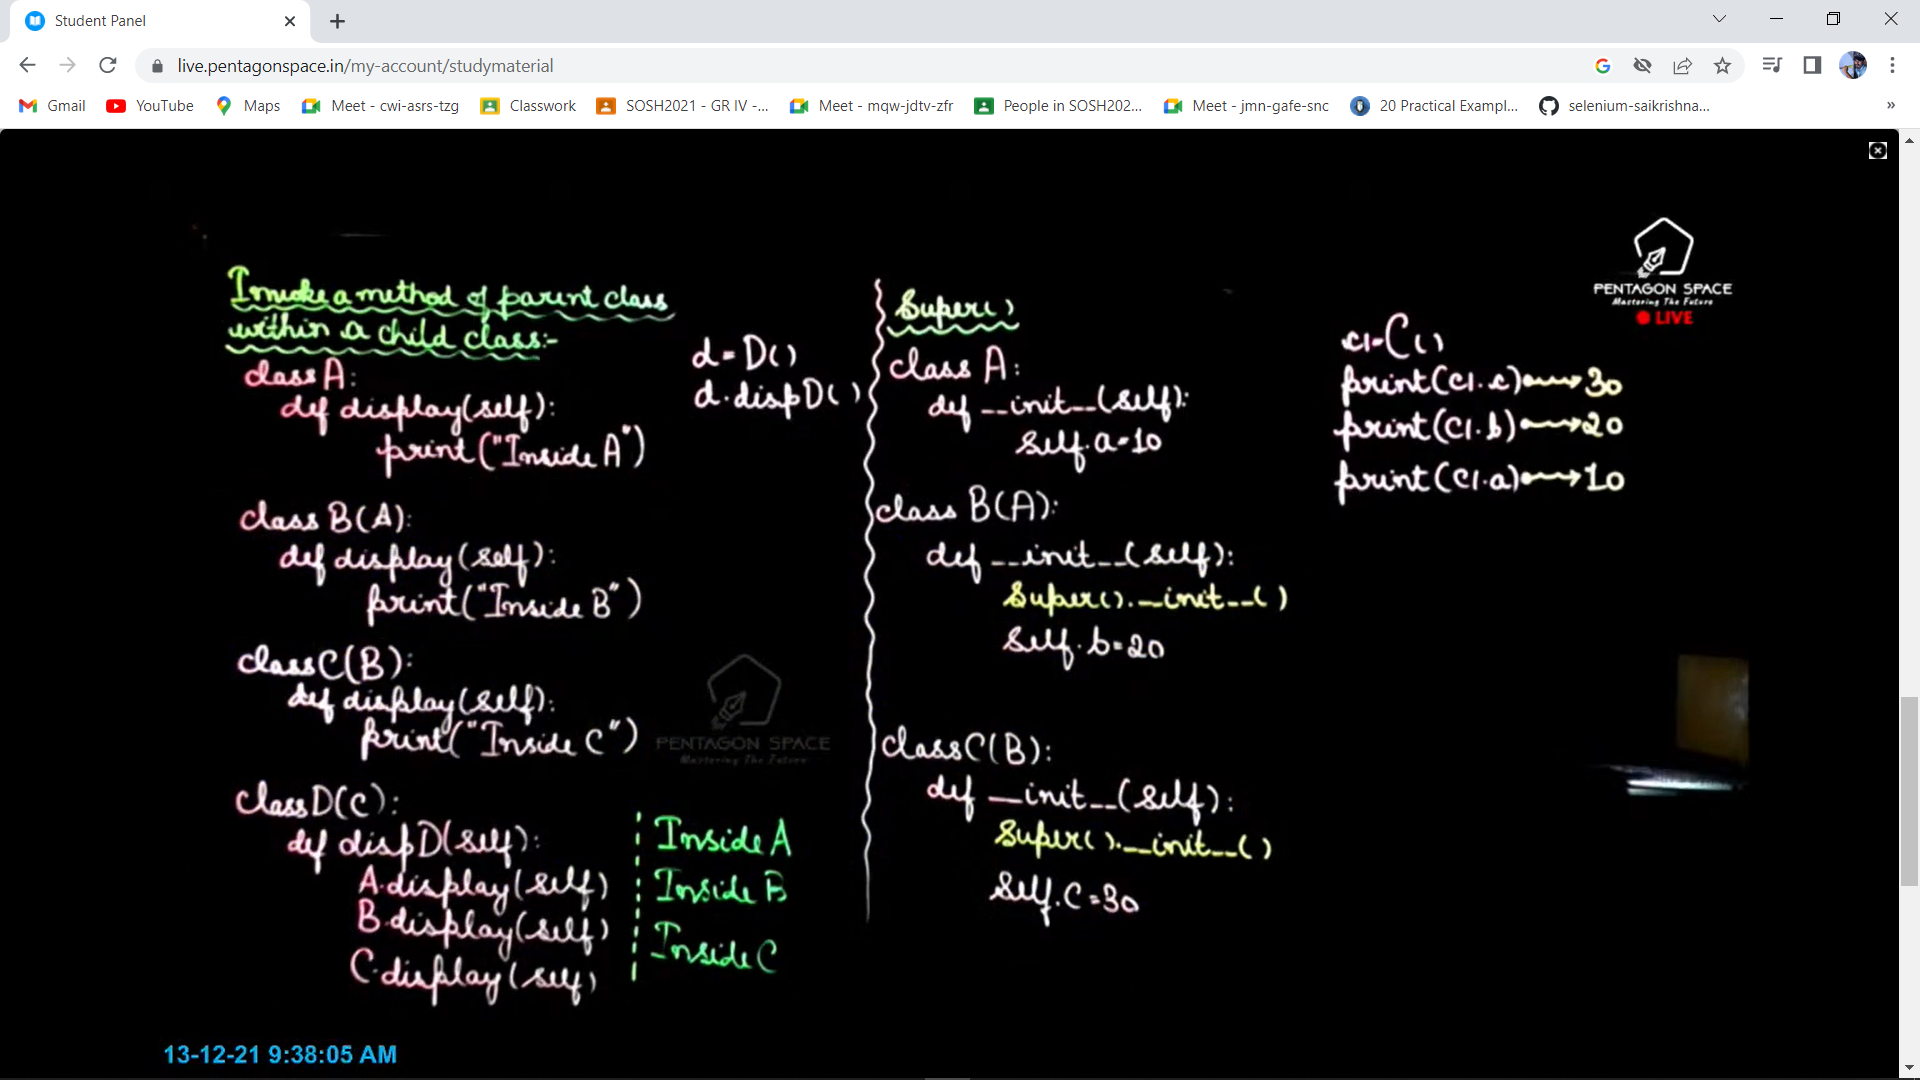 Student Panel
live.pentagonspace.in/my-account/studymaterial
Gmail
YouTube
Maps
Meet - cwi-asrs-tzg
Classwork
SOSH2021 - GR IV -...
Meet - mqw-jdtv-zfr
People in SOSH202...
Meet - jmn-gafe-snc
20 Practical Exampl...
selenium-saikrishna...
»
PENTAGON SPACE
Mastering The Future
LIVE
Invoke a method of parent class
within a child class:-
class A:
def display(self):
print("Inside A")
class B(A):
def display(self):
print("Inside B")
class C(B):
def display(self):
print("Inside C")
class D(C):
def dispD(self):
A.display(self)
B.display(self)
C.display(self)
Inside A
Inside B
Inside C
d=D()
d.dispD()
PENTAGON SPACE
Mastering The Future
Super()
class A:
def __init__(self):
self.a=10
class B(A):
def __init__(self):
Super().__init__()
self.b=20
class C(B):
def __init__(self):
Super().__init__()
self.c=30
c1=C()
print(c1.c)→30
print(c1.b)→20
print(c1.a)→10
13-12-21 9:38:05 AM